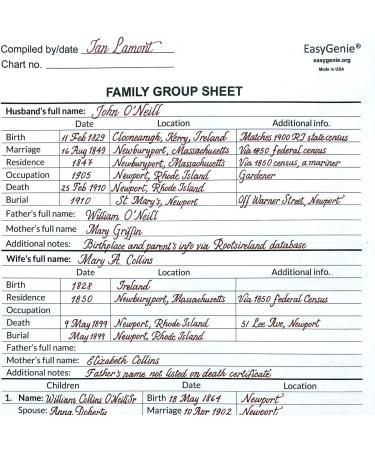 Compiled by/date Ian Lamont EasyGenie®
easygenie.org
Chart no. Made in USA
FAMILY GROUP SHEET
Husband's full name: John O'Neill
Date Location Additional info.
Birth 11 Feb 1829 Clooneanagh, Kerry, Ireland Matches 1900 RI state census
Marriage 16 Aug 1849 Newburyport, Massachusetts Via 1850 federal census
Residence 1847 Newburyport, Massachusetts Via 1850 census, a mariner
Occupation 1905 Newport, Rhode Island Gardener
Death 25 Feb 1910 Newport, Rhode Island
Burial 1910 St. Mary's, Newport Off Warner Street, Newport
Father's full name: William O'Neill
Mother's full name: Mary Griffin
Additional notes: Birthplace and parent's info via Rootsireland database
Wife's full name: Mary A. Collins
Date Location Additional info.
Birth 1828 Ireland
Residence 1850 Newburyport, Massachusetts Via 1850 Federal Census
Occupation
Death 9 May 1899 Newport, Rhode Island 51 Lee Ave, Newport
Burial May 1899 Newport, Rhode Island
Father's full name:
Mother's full name: Elizabeth Collins
Additional notes: Father's name not listed on death certificate
Children Date Location
1. Name: William Collins O'Neill Jr Birth 18 May 1864 Newport
Spouse: Anna Doherty Marriage 10 Apr 1902 Newport